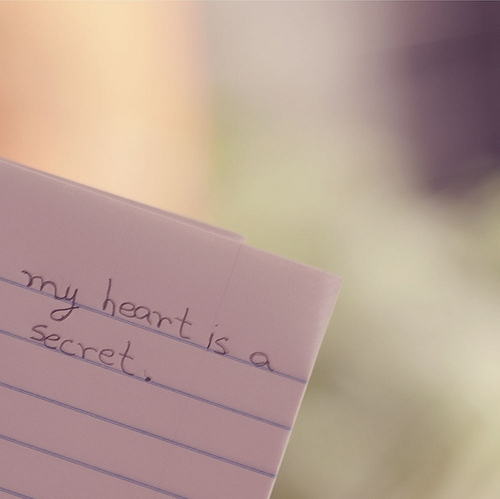 my heart is a
secret.